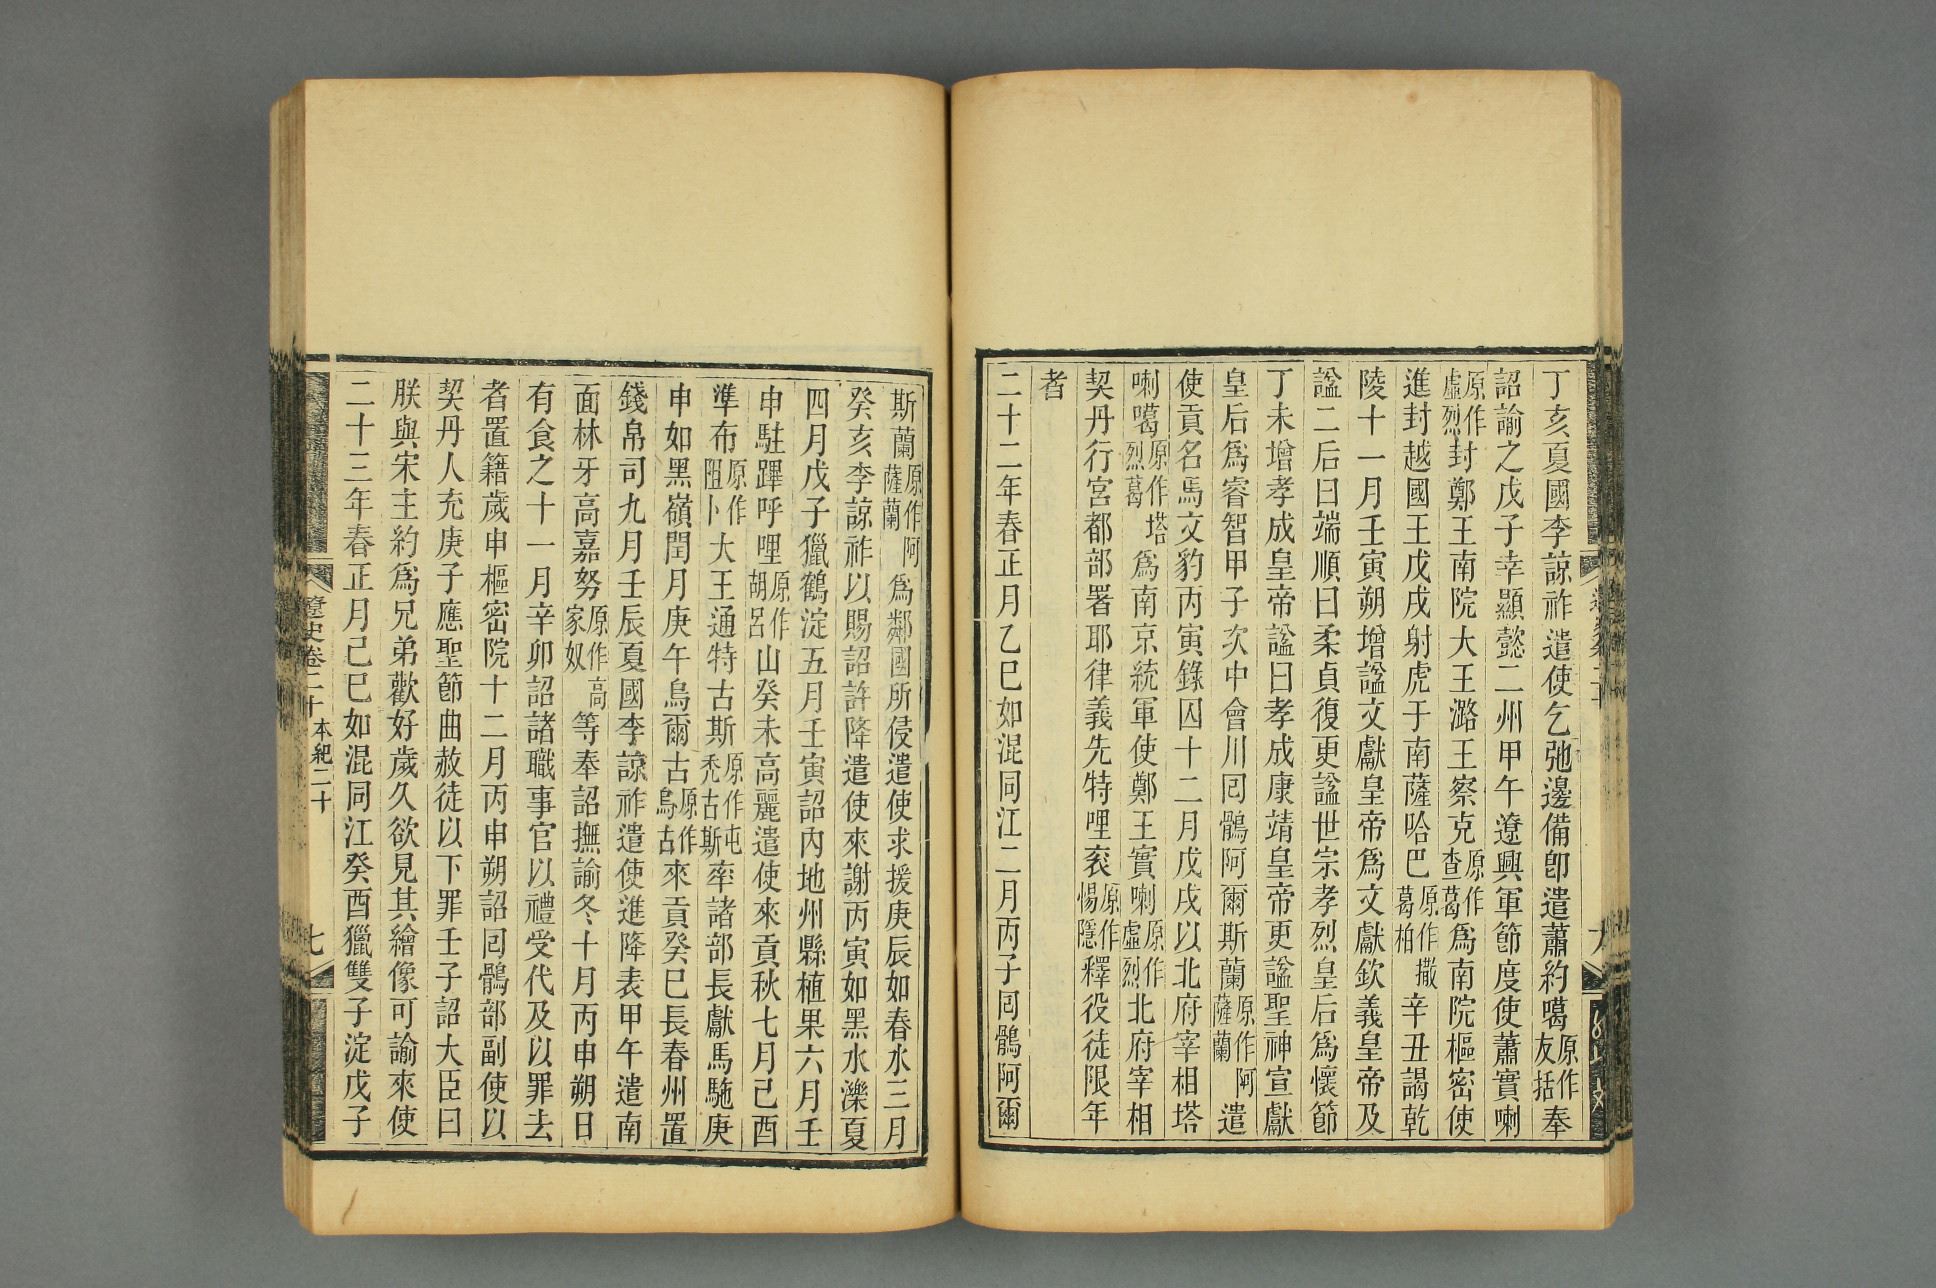 丁亥夏國李諒祚遣使乞弛邊備卽遣蕭約噶原作友括奉
詔諭之戊子幸顯懿二州甲午遼興軍節度使蕭實喇
原作虛烈封鄭王南院大王潞王察克原作查葛爲南院樞密使
進封越國王戊戌射虎于南薩哈巴原作撒葛柏辛丑謁乾
陵十一月壬寅朔增謚文獻皇帝爲文獻欽義皇帝及
謚二后曰端順曰柔貞復更謚世宗孝烈皇后爲懷節
丁未增孝成皇帝謚曰孝成康靖皇帝更謚聖神宣獻
皇后爲睿智甲子次中會川囘鶻阿爾斯蘭原作阿薩蘭遣
使貢名馬文豹丙寅錄囚十二月戊戌以北府宰相塔
喇噶原作塔烈葛爲南京統軍使鄭王實喇原作虛烈北府宰相
契丹行宮都部署耶律義先特哩袞原作惕隱釋役徒限年
者
二十二年春正月乙巳如混同江二月丙子囘鶻阿爾
斯蘭原作阿薩蘭爲鄰國所侵遣使求援庚辰如春水三月
癸亥李諒祚以賜詔許降遣使來謝丙寅如黑水濼夏
四月戊子獵鶴淀五月壬寅詔內地州縣植果六月壬
申駐蹕呼哩原作胡呂山癸未高麗遣使來貢秋七月己酉
準布原作阻卜大王通特古斯原作屯禿古斯率諸部長獻馬駞庚
申如黑嶺閏月庚午烏爾古原作烏古來貢癸巳長春州置
錢帛司九月壬辰夏國李諒祚遣使進降表甲午遣南
面林牙高嘉努原作高家奴等奉詔撫諭冬十月丙申朔日
有食之十一月辛卯詔諸職事官以禮受代及以罪去
者置籍歲申樞密院十二月丙申朔詔囘鶻部副使以
契丹人充庚子應聖節曲赦徒以下罪壬子詔大臣曰
朕與宋主約爲兄弟歡好歲久欲見其繪像可諭來使
二十三年春正月己巳如混同江癸酉獵雙子淀戊子
遼史卷二十 本紀二十 七